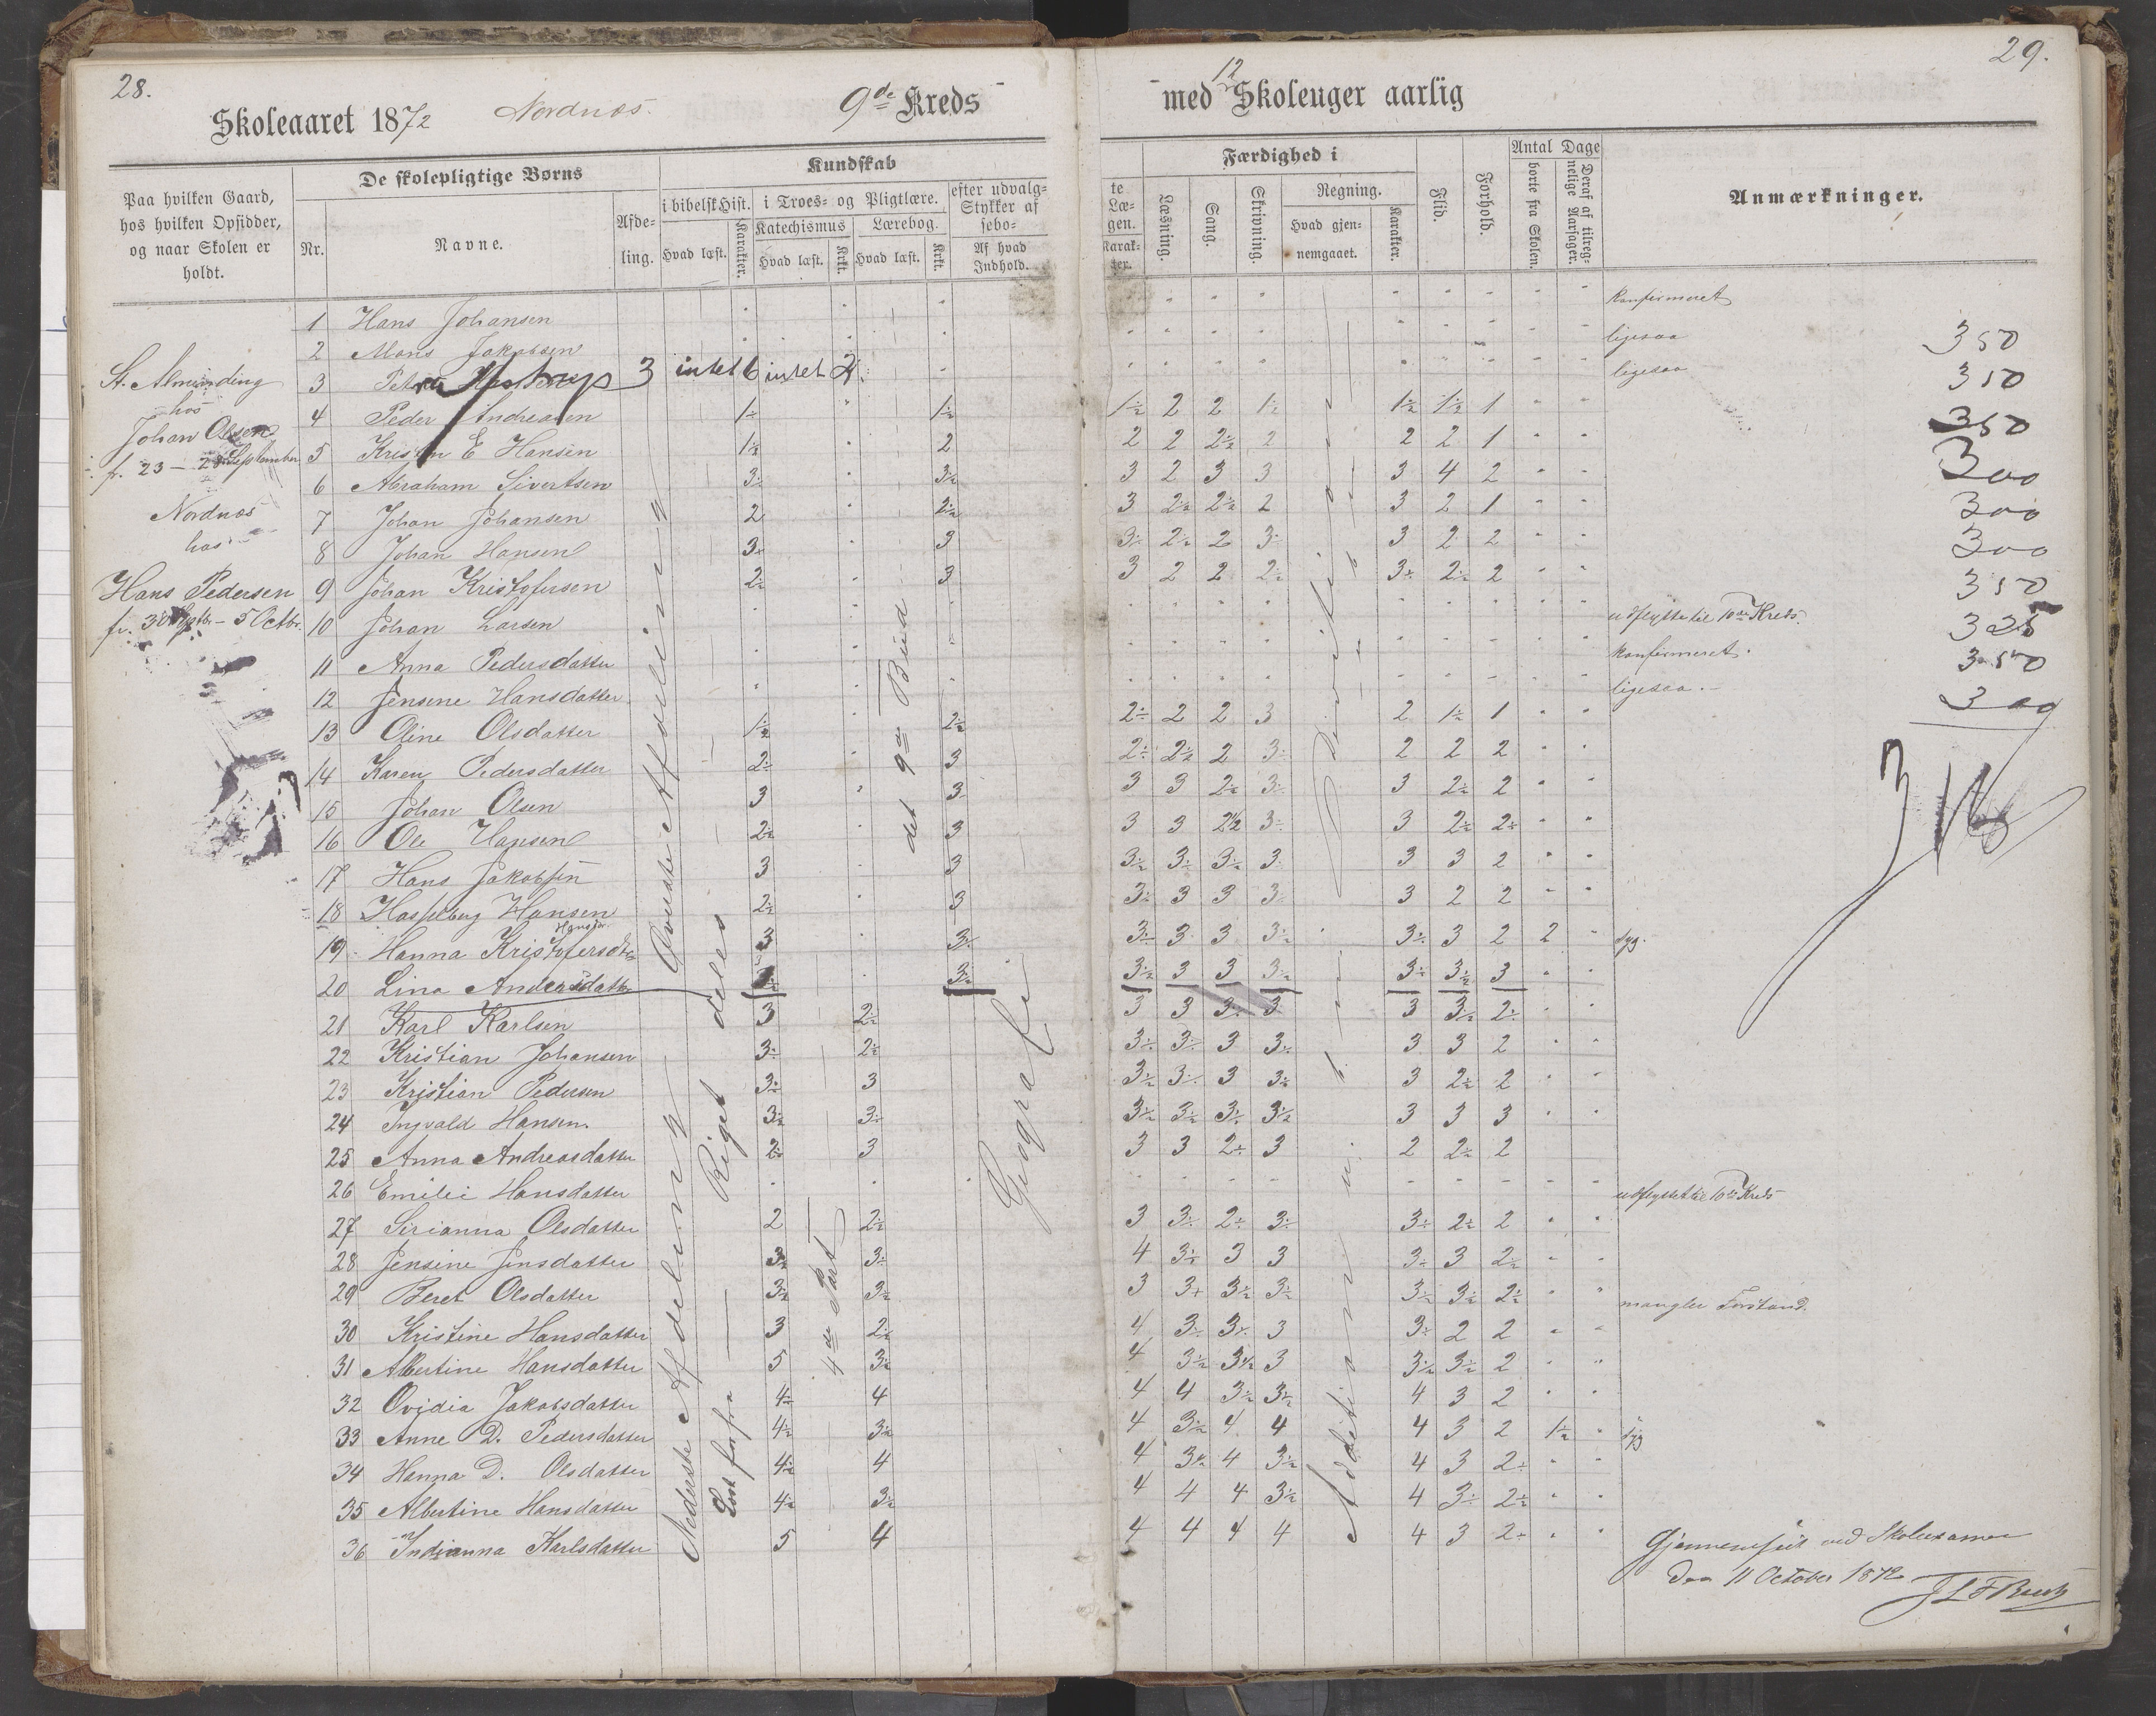 28.
Skoleaaret 1872
Nordnæs.
9de Kreds
Paa hvilken Gaard, hos hvilken Opsidder, og naar Skolen er holdt.
De skolepligtige Børns
Nr.
Navne.
Afdeling.
Kundskab
i bibelsk Hist.
Hvad læst.
Karakter.
i Troes- og Pligtlære.
Katechismus
Hvad læst.
Krkt.
Lærebog.
Hvad læst.
Krkt.
efter udvalgte Stykker af Læsebogen.
Af hvad Indhold.
St. Almending
hos
Johan Olsen
fr. 23 – 28 September
Nordnæs
hos
Hans Pedersen
fr. 30 Sptbr – 5 Octbr.
1 Hans Johansen
2 Mons Jakobsen
3 Petra 3 intet 6 intet 4
4 Peder Andreasen 1½ 1½
5 Kristen E Hansen 1½ 2
6 Abraham Sivertsen 3÷ 3½
7 Johan Johansen 2 2½
8 Johan Hansen 3÷ 3
9 Johan Kristofersen 2÷ 3
10 Johan Larsen
11 Anna Pedersdatter
12 Jensine Hansdatter
13 Oline Olsdatter 1½ 2½
14 Karen Pedersdatter 2÷ 3
15 Johan Olsen 3 3
16 Ole Hansen 2½ 3
17 Hans Jakobsen 3 3
18 Hasselberg Hansen 2½ 3
19 Hanna Kristofersdtr 3 3÷
20 Lina Andersdatter 3½
21 Karl Karlsen 3 2½
22 Kristian Johansen 3÷ 2½
23 Kristian Pedersen 3÷ 3
24 Ingvald Hansen. 3½ 3÷
25 Anna Andreasdatter 2÷ 3
26 Emilie Hansdatter
27 Sirianna Olsdatter 2 2½
28 Jensine Jensdatter 3½ 3÷
29 Beret Olsdatter 3½ 3½
30 Kristine Hansdatter 3 2½
31 Albertine Hansdatter 5 3½
32 Ovidia Jakobsdatter 4÷ 4
33 Anne D. Pedersdatter 4½ 3½
34 Hanna D. Olsdatter 4½ 4
35 Albertine Hansdatter 4½ 3½
36 Indianna Karlsdatter 5 4
Øverste Afdeling
Nederste Afdeling
Læst forfra
Riget deles
4de Part
det 9de Bud
Geografi
29.
med 12 Skoleuger aarlig
Karakter.
Færdighed i
Læsning.
Sang.
Skrivning.
Regning.
Hvad gjennemgaaet.
Karakter.
Flid.
Forhold.
Antal Dage
borte fra Skolen.
Deraf af tilregnelige Aarsager.
Anmærkninger.
konfirmeret
ligesaa
ligesaa
1½ 2 2 1÷ 1½ 1½ 1
2 2 2½ 2 2 2 1
3 2 3 3 3 4 2
3 2½ 2½ 2 3 2 1
3÷ 2½ 2 3÷ 3 2 2
3 2 2 2½ 3÷ 2½ 2
udflyttet til 10de Kreds.
konfirmeret.
ligesaa.
2÷ 2 2 3 2 1½ 1
2÷ 2½ 2 3÷ 2 2 2
3 3 2½ 3÷ 3 2½ 2
3 3 2½ 3÷ 3 2½ 2÷
3½ 3÷ 3½ 3 3 3 2
3÷ 3 3 3÷ 3 2 2
3÷ 3 3 3½ 3÷ 3 2 2 syg.
3½ 3 3 3½ 3÷ 3½ 3
3 3 3÷ 3 3 3½ 2÷
3½ 3÷ 3 3½ 3 3 2
3½ 3÷ 3 3½ 3 2½ 2
3½ 3½ 3÷ 3½ 3 3 3
3 3 2÷ 3 2 2½ 2
udflyttet til 10de Kreds
3 3÷ 2÷ 3÷ 3÷ 2½ 2
4 3½ 3 3 3÷ 3 2½
3 3+ 3½ 3½ 3½ 3½ 2½ mangler Forstand.
4 3÷ 3½ 3 3÷ 2 2
4 3½ 3½ 3 3½ 3½ 2
4 4 3½ 3½ 4 3 2
4 3½ 4 4 4 3 2 1½ syg
4 3½ 4 3½ 4 3 2÷
4 4 4 3½ 4 3÷ 2½
4 4 4 4 4 3 2÷
Addition
350
350
350
300
300
300
350
325
350
300
Gjennemseet ved Skoleexamen
den 11 October 1872